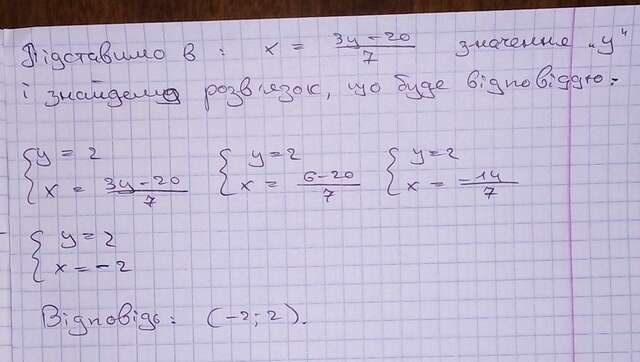 Підставимо в : x = 3y-20/7 значення „y"
і знайдемо розв'язок, що буде відповіддю:
{y = 2 {y = 2 {y = 2
{x = 3y-20/7 {x = 6-20/7 {x = -14/7
{y = 2
{x = -2
Відповідь: (-2; 2).